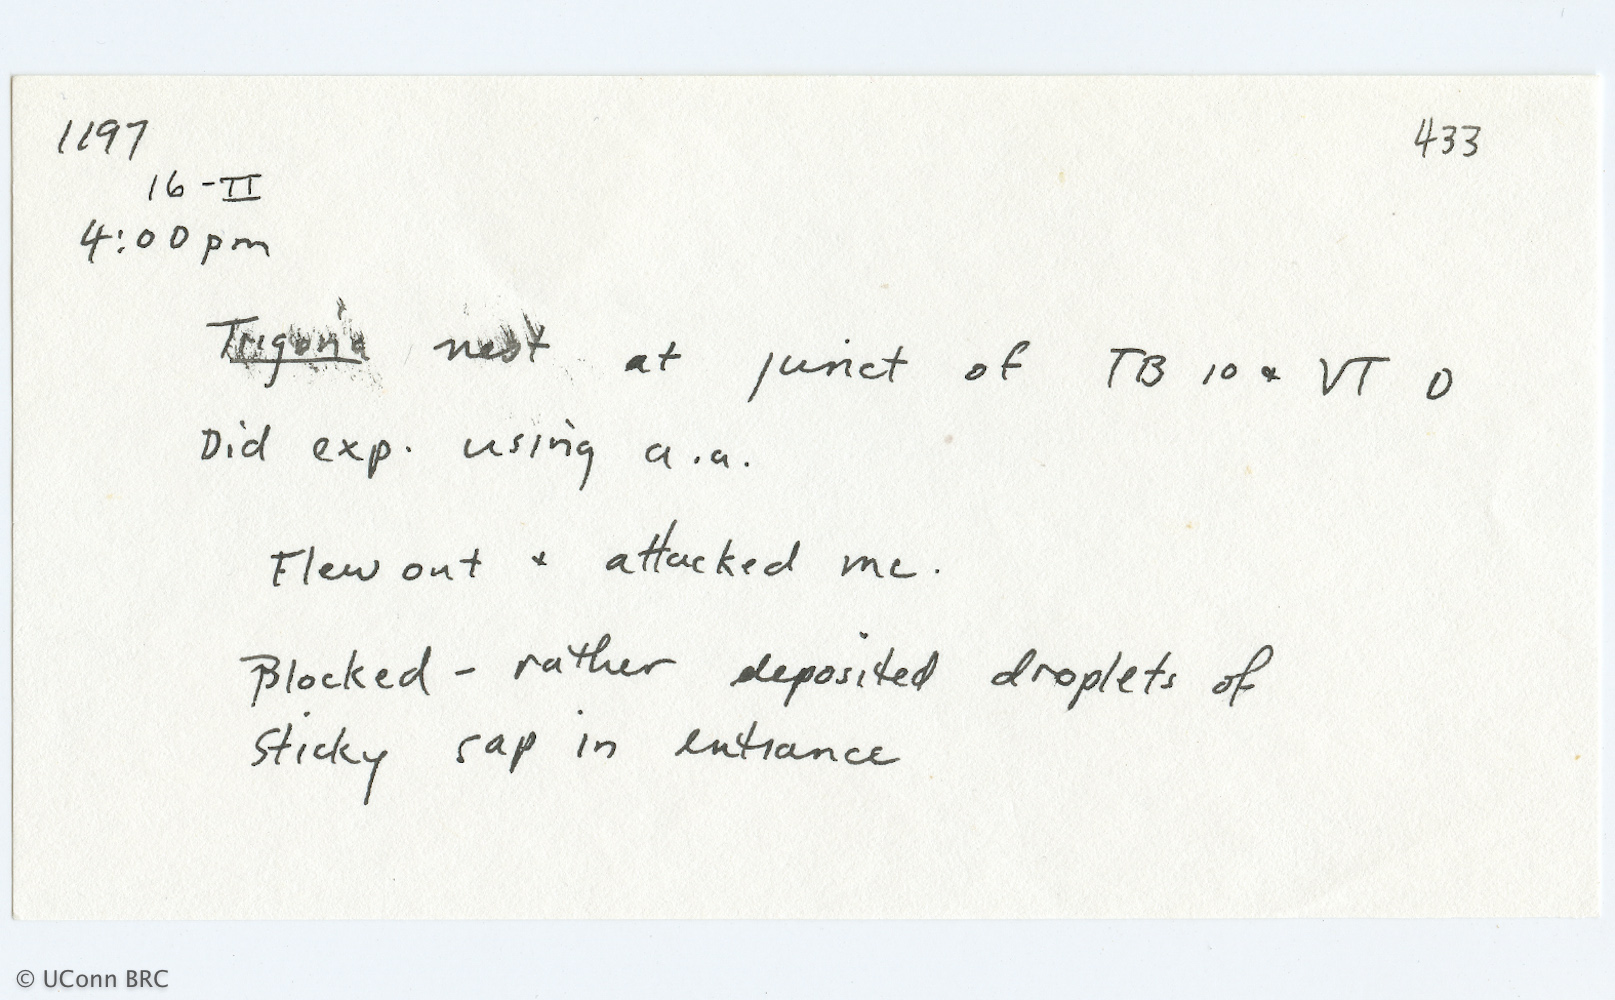 1197 433
16-II
4:00pm
Trigona nest at junct of TB 10 & VT 0
Did exp. using a.a.
Flew out & attacked me.
Blocked - rather deposited droplets of
sticky sap in entrance
© UConn BRC